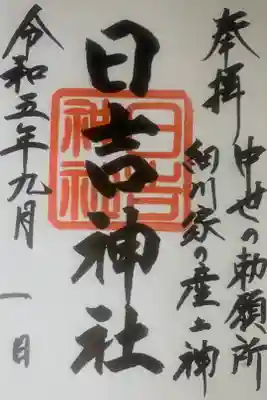 奉拝
中世の勅願所
細川家の産土神
日吉神社
日吉
神社
令和五年九月一日